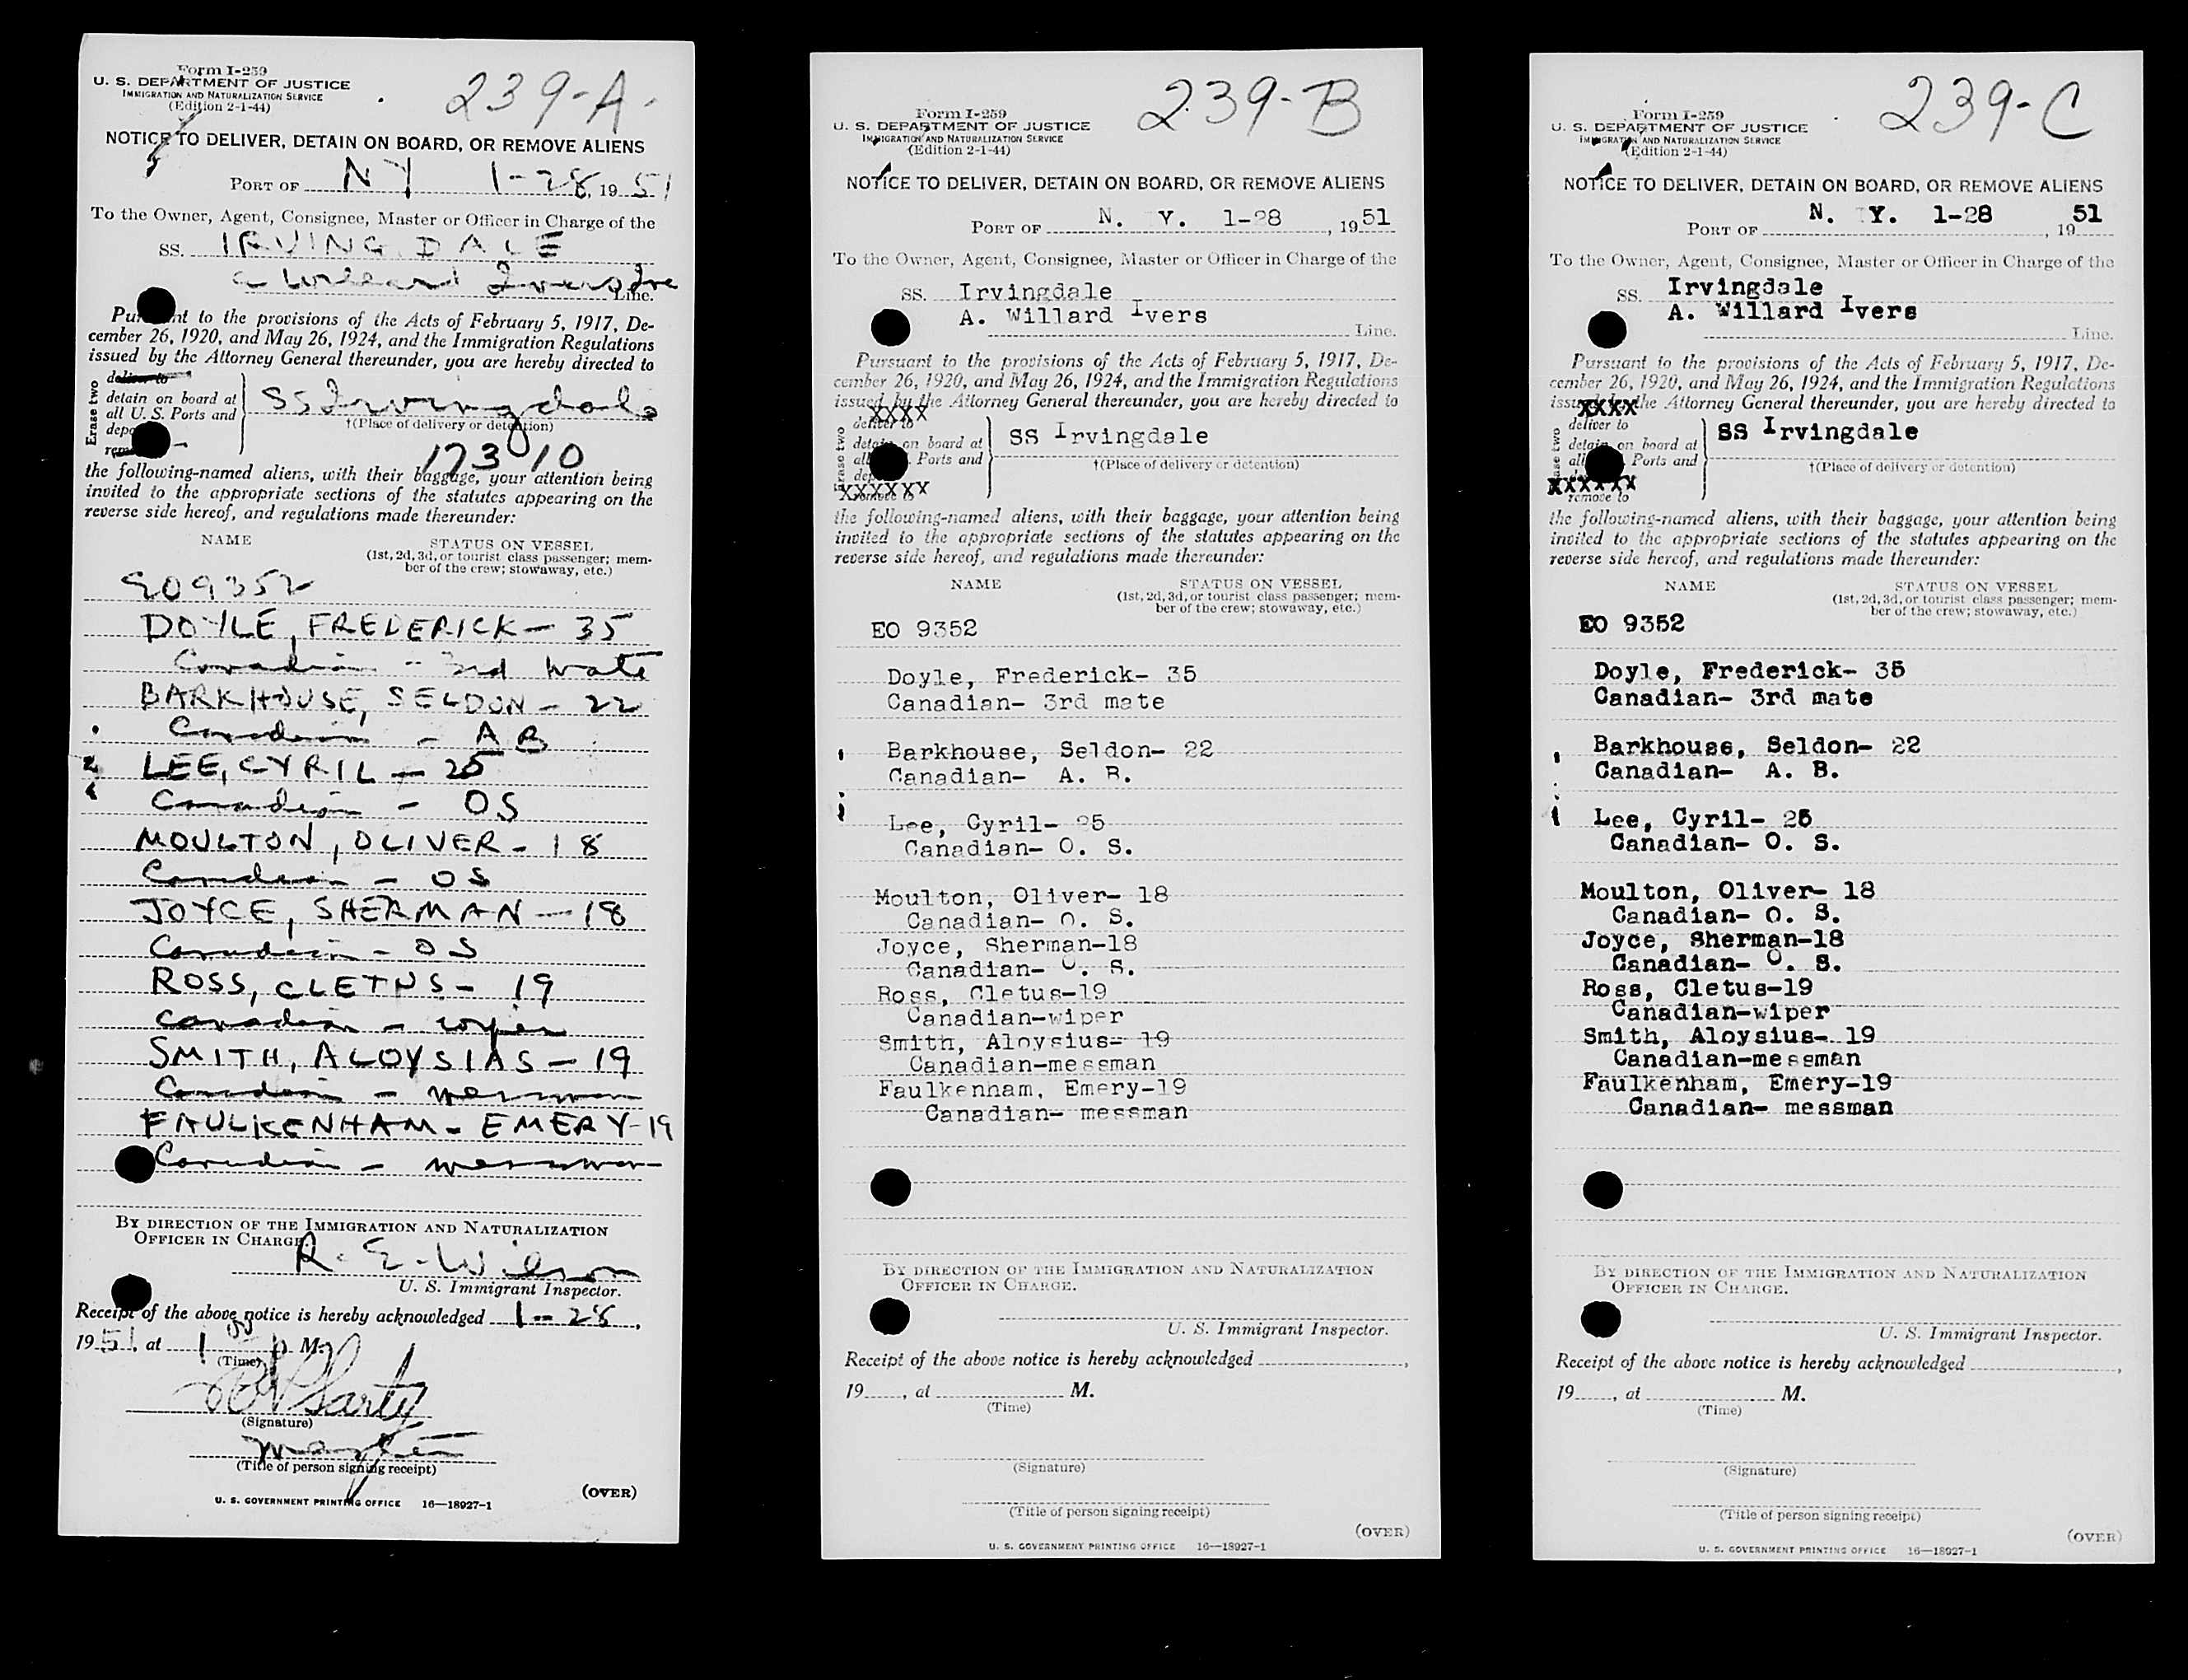 Form I-259
U. S. DEPARTMENT OF JUSTICE
IMMIGRATION AND NATURALIZATION SERVICE
(Edition 2-1-44)
239-A
NOTICE TO DELIVER, DETAIN ON BOARD, OR REMOVE ALIENS
PORT OF NY 1-28, 1951
To the Owner, Agent, Consignee, Master or Officer in Charge of the
SS. IRVINGDALE
a Willard Ivers Line.
Pursuant to the provisions of the Acts of February 5, 1917, De-
cember 26, 1920, and May 26, 1924, and the Immigration Regulations
issued by the Attorney General thereunder, you are hereby directed to
Erase two
deliver to
detain on board at
all U. S. Ports and
SS Irvingdale
†(Place of delivery or detention)
173/10
the following-named aliens, with their baggage, your attention being
invited to the appropriate sections of the statutes appearing on the
reverse side hereof, and regulations made thereunder:
NAME STATUS ON VESSEL
(1st, 2d, 3d, or tourist class passenger; mem-
ber of the crew; stowaway, etc.)
EO 9352
DOYLE, FREDERICK - 35
Canadian - 3rd Mate
BARKHOUSE, SELDON - 22
Canadian - AB
LEE, CYRIL - 25
Canadian - OS
MOULTON, OLIVER - 18
Canadian - OS
JOYCE, SHERMAN - 18
Canadian - OS
ROSS, CLETUS - 19
Canadian - wiper
SMITH, ALOYSIAS - 19
Canadian - messman
FAULKENHAM - EMERY - 19
Canadian - messman
BY DIRECTION OF THE IMMIGRATION AND NATURALIZATION
OFFICER IN CHARGE.
R. E. Wilson
U. S. Immigrant Inspector.
Receipt of the above notice is hereby acknowledged 1-28,
1951, at 1 p M.
(Time)
(Signature)
Master
(Title of person signing receipt)
(OVER)
U. S. GOVERNMENT PRINTING OFFICE 16—18927-1
239-B
Form I-259
U. S. DEPARTMENT OF JUSTICE
IMMIGRATION AND NATURALIZATION SERVICE
(Edition 2-1-44)
NOTICE TO DELIVER, DETAIN ON BOARD, OR REMOVE ALIENS
PORT OF N. Y. 1-28, 1951
To the Owner, Agent, Consignee, Master or Officer in Charge of the
SS. Irvingdale
A. Willard Ivers
Line.
Pursuant to the provisions of the Acts of February 5, 1917, De-
cember 26, 1920, and May 26, 1924, and the Immigration Regulations
issued by the Attorney General thereunder, you are hereby directed to
XXXX
Erase two
deliver to
detain on board at
all Ports and
SS Irvingdale
†(Place of delivery or detention)
XXXXXX
remove to
the following-named aliens, with their baggage, your attention being
invited to the appropriate sections of the statutes appearing on the
reverse side hereof, and regulations made thereunder:
NAME STATUS ON VESSEL
(1st, 2d, 3d, or tourist class passenger; mem-
ber of the crew; stowaway, etc.)
EO 9352
Doyle, Frederick- 35
Canadian- 3rd mate
Barkhouse, Seldon- 22
Canadian- A. B.
Lee, Cyril- 25
Canadian- O. S.
Moulton, Oliver- 18
Canadian- O. S.
Joyce, Sherman-18
Canadian- O. S.
Ross, Cletus-19
Canadian-wiper
Smith, Aloysius- 19
Canadian-messman
Faulkenham, Emery-19
Canadian- messman
BY DIRECTION OF THE IMMIGRATION AND NATURALIZATION
OFFICER IN CHARGE.
U. S. Immigrant Inspector.
Receipt of the above notice is hereby acknowledged ,
19 , at M.
(Time)
(Signature)
(Title of person signing receipt)
(OVER)
U. S. GOVERNMENT PRINTING OFFICE 16—18927-1
239-C
Form I-259
U. S. DEPARTMENT OF JUSTICE
IMMIGRATION AND NATURALIZATION SERVICE
(Edition 2-1-44)
NOTICE TO DELIVER, DETAIN ON BOARD, OR REMOVE ALIENS
PORT OF N. Y. 1-28, 1951
To the Owner, Agent, Consignee, Master or Officer in Charge of the
SS. Irvingdale
A. Willard Ivers
Line.
Pursuant to the provisions of the Acts of February 5, 1917, De-
cember 26, 1920, and May 26, 1924, and the Immigration Regulations
issued by the Attorney General thereunder, you are hereby directed to
XXXX
deliver to
detain on board at
all Ports and
SS Irvingdale
†(Place of delivery or detention)
XXXXXX
remove to
the following-named aliens, with their baggage, your attention being
invited to the appropriate sections of the statutes appearing on the
reverse side hereof, and regulations made thereunder:
NAME STATUS ON VESSEL
(1st, 2d, 3d, or tourist class passenger; mem-
ber of the crew; stowaway, etc.)
EO 9352
Doyle, Frederick- 35
Canadian- 3rd mate
Barkhouse, Seldon- 22
Canadian- A. B.
Lee, Cyril- 25
Canadian- O. S.
Moulton, Oliver- 18
Canadian- O. S.
Joyce, Sherman-18
Canadian- O. S.
Ross, Cletus-19
Canadian-wiper
Smith, Aloysius- 19
Canadian-messman
Faulkenham, Emery-19
Canadian- messman
BY DIRECTION OF THE IMMIGRATION AND NATURALIZATION
OFFICER IN CHARGE.
U. S. Immigrant Inspector.
Receipt of the above notice is hereby acknowledged ,
19 , at M.
(Time)
(Signature)
(Title of person signing receipt)
(OVER)
U. S. GOVERNMENT PRINTING OFFICE 16—18927-1